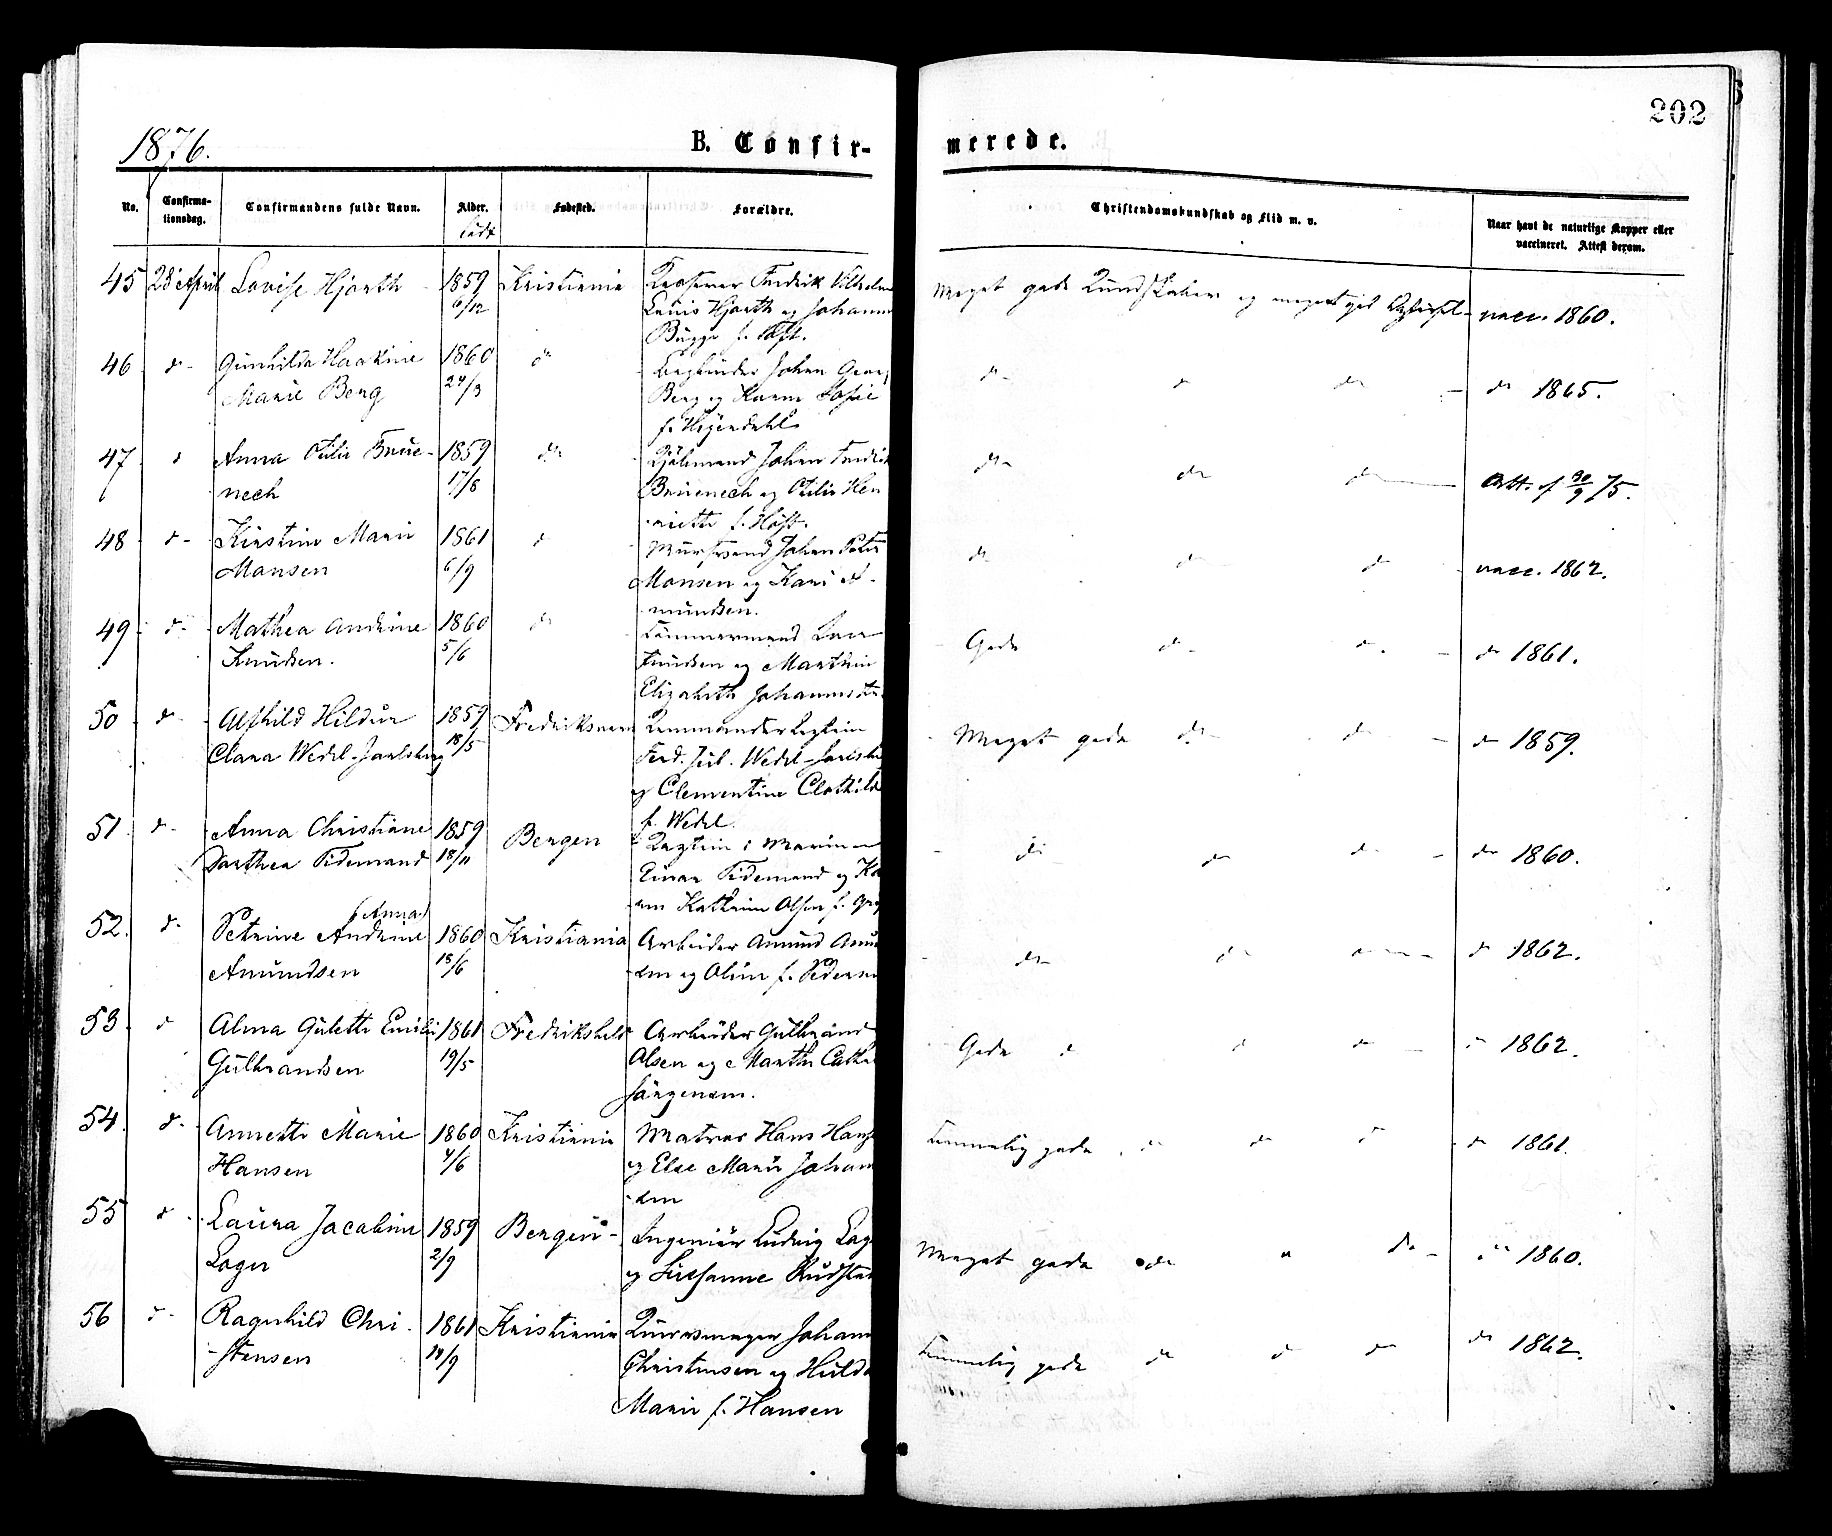 202
1876.
B. Confir-
merede.
No.
Confirma-
tionsdag.
Confirmandens fulde Navn.
Alder.
født
Fødested.
Forældre.
Christendomskundskab og Flid m. v.
Naar havt de naturlige Kopper eller
vaccineret. Attest derom.
45 28 April Lovise Hjorth 1859 Kristiania Fredrik Vilhelm Meget gode Kundskaber og meget god vacc. 1860.
6/12 Louis Hjorth og Johanne
Bugge f.
46 d- Gunhilda Haakine 1860 do Johan Georg do do do do 1865.
Marie Berg 24/3 Berg og Karen Sofie
f. Høyendahl
47 d Anna Otilie Brue- 1859 do Johan Fredrik do do do Att. af 30/9 75.
nech 17/8 Bruenech og Otilie Hen
riette f. Høst.
48 d- Kirstine Marie 1861 d Johan Peter do do d vacc. 1862.
Monsen 6/9 Monsen og Kari A-
mundsen.
49 d- Mathea Andrine 1860 do Tømmermand Gode do d. do 1861.
Knudsen. 5/6 Knudsen og Marthin
Elizabeth
50 d- Alfhild Hildur 1859 Fredriksværn Kommandørkaptein Meget gode do do do 1859.
Clara Wedel-Jarlsberg 18/5 Ferd. Jul. Wedel-Jarlsb
og Clementine Clothilde
f. Wedel.
51 d- Anna Christiane 1859 Bergen Kaptein i Marinen do do do do 1860.
Dorthea Tidemand 18/11 Einar Tidemand og
Kathrine Olsen f.
52. d- (Anna)
Petrine Andrine 1860 Kristiania Arbeider Amund Amun do do d 1862.
Amundsen 15/6 sen og Oline f. Pedersen
53 d Alma Gulette Emilie 1861 Fredrikshald Arbeider Gulbrand Gode d d do 1862.
Gulbrandsen 19/5 Olsen og Marthe Cath
Jørgensen.
54. d- Annette Marie 1860 Kristiania Matros Hans Hans Temmelig gode do do d do 1861.
Hansen 4/6 og Else Marie Johan
sen
55 d- Laura Jacobine 1859 Bergen Ingeniør Ludvig Meget gode do do 1860.
2/9 og Susanne
56 d- Ragnhild Chri- 1861 Kristiania Johan Temmelig gode do d do do 1862.
-stensen 19/9 Christensen og Hulda
Marie f. Hansen